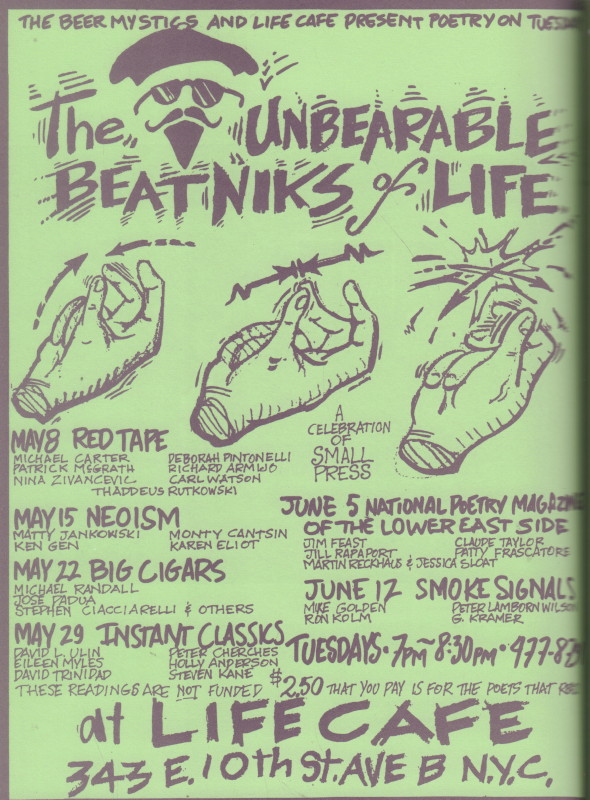 THE BEER MYSTICS AND LIFE CAFE PRESENT POETRY ON
The UNBEARABLE
BEATNIKS of LIFE
A
CELEBRATION
OF
SMALL
PRESS
MAY 8 RED TAPE
MICHAEL CARTER DEBORAH PINTONELLI
PATRICK McGRATH RICHARD ARMIJO
NINA ZIVANCEVIC CARL WATSON
THADDEUS RUTKOWSKI
MAY 15 NEOISM
MATTY JANKOWSKI MONTY CANTSIN
KEN GEN KAREN ELIOT
MAY 22 BIG CIGARS
MICHAEL RANDALL
JOSE PADUA
STEPHEN CIACCIARELLI & OTHERS
MAY 29 INSTANT CLASSICS
DAVID L. ULIN PETER CHERCHES
EILEEN MYLES HOLLY ANDERSON
DAVID TRINIDAD STEVEN KANE
JUNE 5 NATIONAL POETRY MAGAZINE
OF THE LOWER EAST SIDE
JIM FEAST CLAUDE TAYLOR
JILL RAPAPORT PATTY FRASCATORE
MARTIN RECKHAUS & JESSICA SLOAT
JUNE 12 SMOKE SIGNALS
MIKE GOLDEN PETER LAMBORN WILSON
RON KOLM G. KRAMER
TUESDAYS • 7PM ~ 8:30PM •
THESE READINGS ARE NOT FUNDED $2.50 THAT YOU PAY IS FOR THE POETS THAT
at LIFE CAFE
343 E. 10th ST. AVE B N.Y.C.